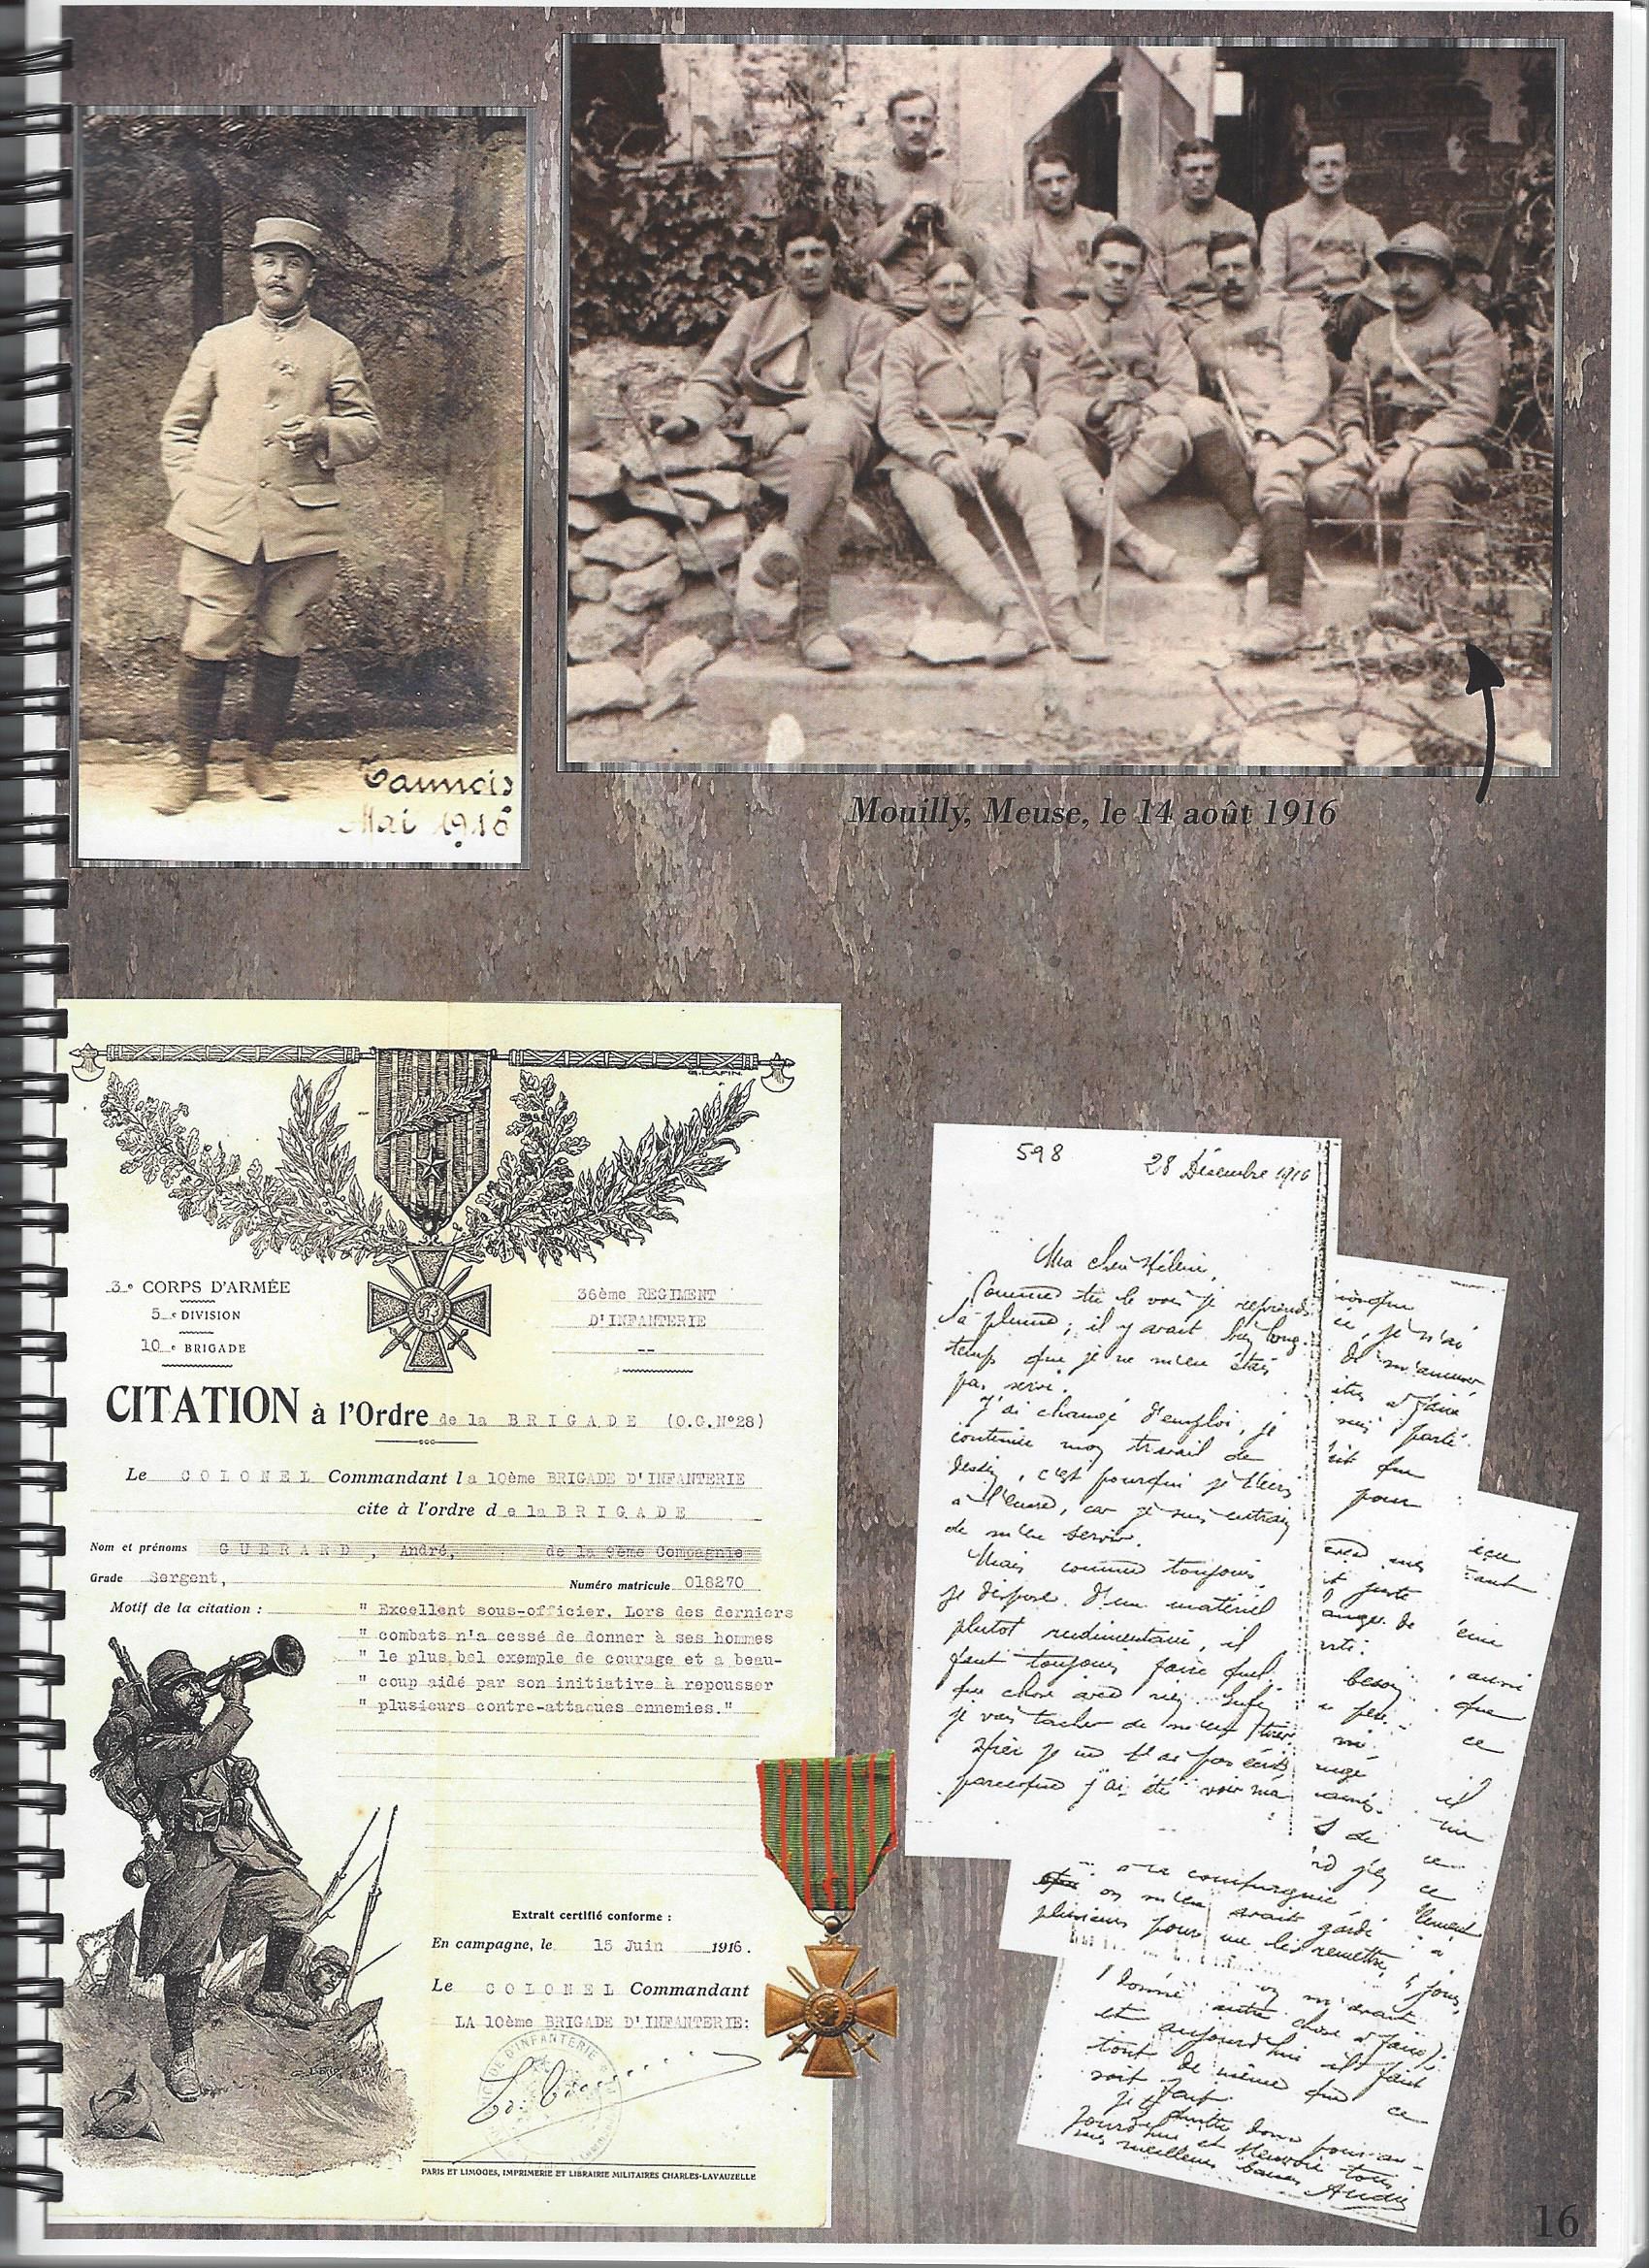 Tannois
Mai 1916
Mouilly, Meuse, le 14 août 1916
G. LAPIN.
3e CORPS D'ARMÉE
5e DIVISION
10e BRIGADE
36ème REGIMENT
D'INFANTERIE
--
CITATION à l'Ordre de la BRIGADE (O.G.N°28)
Le COLONEL Commandant la 10ème BRIGADE D'INFANTERIE
cite à l'ordre de la BRIGADE
Nom et prénoms GUERARD, André, de la 9ème Compagnie
Grade Sergent, Numéro matricule 018270
Motif de la citation : " Excellent sous-officier. Lors des derniers
" combats n'a cessé de donner à ses hommes
" le plus bel exemple de courage et a beau-
" coup aidé par son initiative à repousser
" plusieurs contre-attaques ennemies."
Extrait certifié conforme :
En campagne, le 15 Juin 1916.
Le COLONEL Commandant
LA 10ème BRIGADE D'INFANTERIE:
PARIS ET LIMOGES, IMPRIMERIE ET LIBRAIRIE MILITAIRES CHARLES-LAVAUZELLE
598 28 Décembre 1916
Ma chère Hélène,
Comme tu le vois je reprends
la plume ; il y avait bien long-
temps que je ne m'en étais
pas servi.
J'ai changé d'emploi, je
continue mon travail de
dessin, c'est pourquoi je t'écris
à l'encre, car je suis en train
de m'en servir.
Mais comme toujours
je dispose d'un matériel
plutôt rudimentaire, il
faut toujours faire quel-
que chose avec rien. Enfin
je vais tacher de m'en tirer.
Hier je ne t'ai pas écrit
parce que j'ai été voir ma
je n'ai
de m'amuser
pour
besoin
que
ce
il
de
ce
compagnie
on m'en avait gardé
plusieurs pour me les remettre,
m'avait
donné autre chose à faire) :
et aujourd'hui il faut
tout de même que ce
soit fait.
Je te quitte donc pour au-
jourd'hui et t'envoie tous
mes meilleurs baisers
André
16